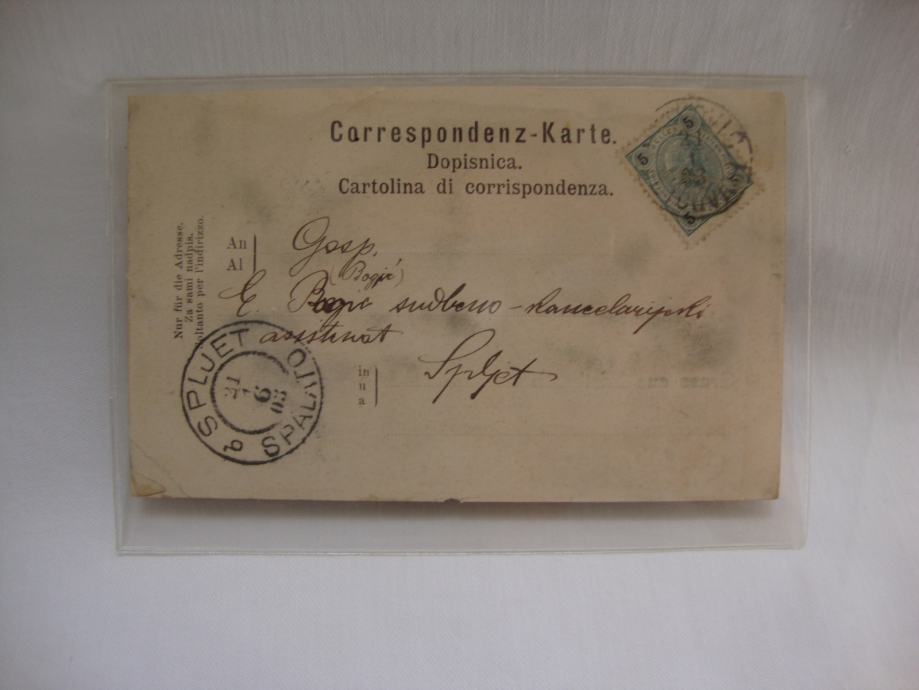 Correspondenz-Karte.
Dopisnica.
Cartolina di corrispondenza.
Nur für die Adresse.
Za sami nadpis.
Soltanto per l'indirizzo.
An
Al
Gosp.
(Bogić)
E. sudbeno-kancelarijski
asistnat
in
u
a
Spljet
SPLJET
SPALATO
21
6
03
5
5
5